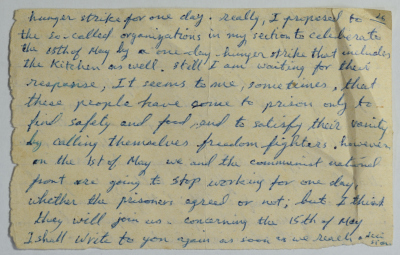 hunger strike for one day. really, I proposed to
the so-called organizations in my section to celeborate
the 15th of May by a one-day-hunger strike that includes
the kitchen as well. Still I am waiting for their
response, It seems to me, sometimes, that
these people have come to prison only to
find safety and food, and to satisfy their vanity
by calling themselves freedom fighters. however
on the 1st of May we and the communist national
front are going to stop working for one day
whether the prisoners agreed or not; but I think
they will join us. concerning the 15th of May
I shall write to you again as soon as we reach a